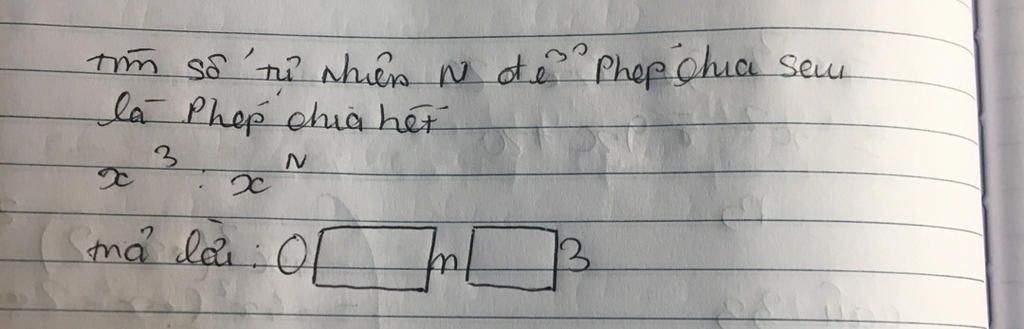 tìm số tự nhiên N để Phép chia sau
là Phép chia hết
x³ : xᴺ
trả lời : 0 n 3